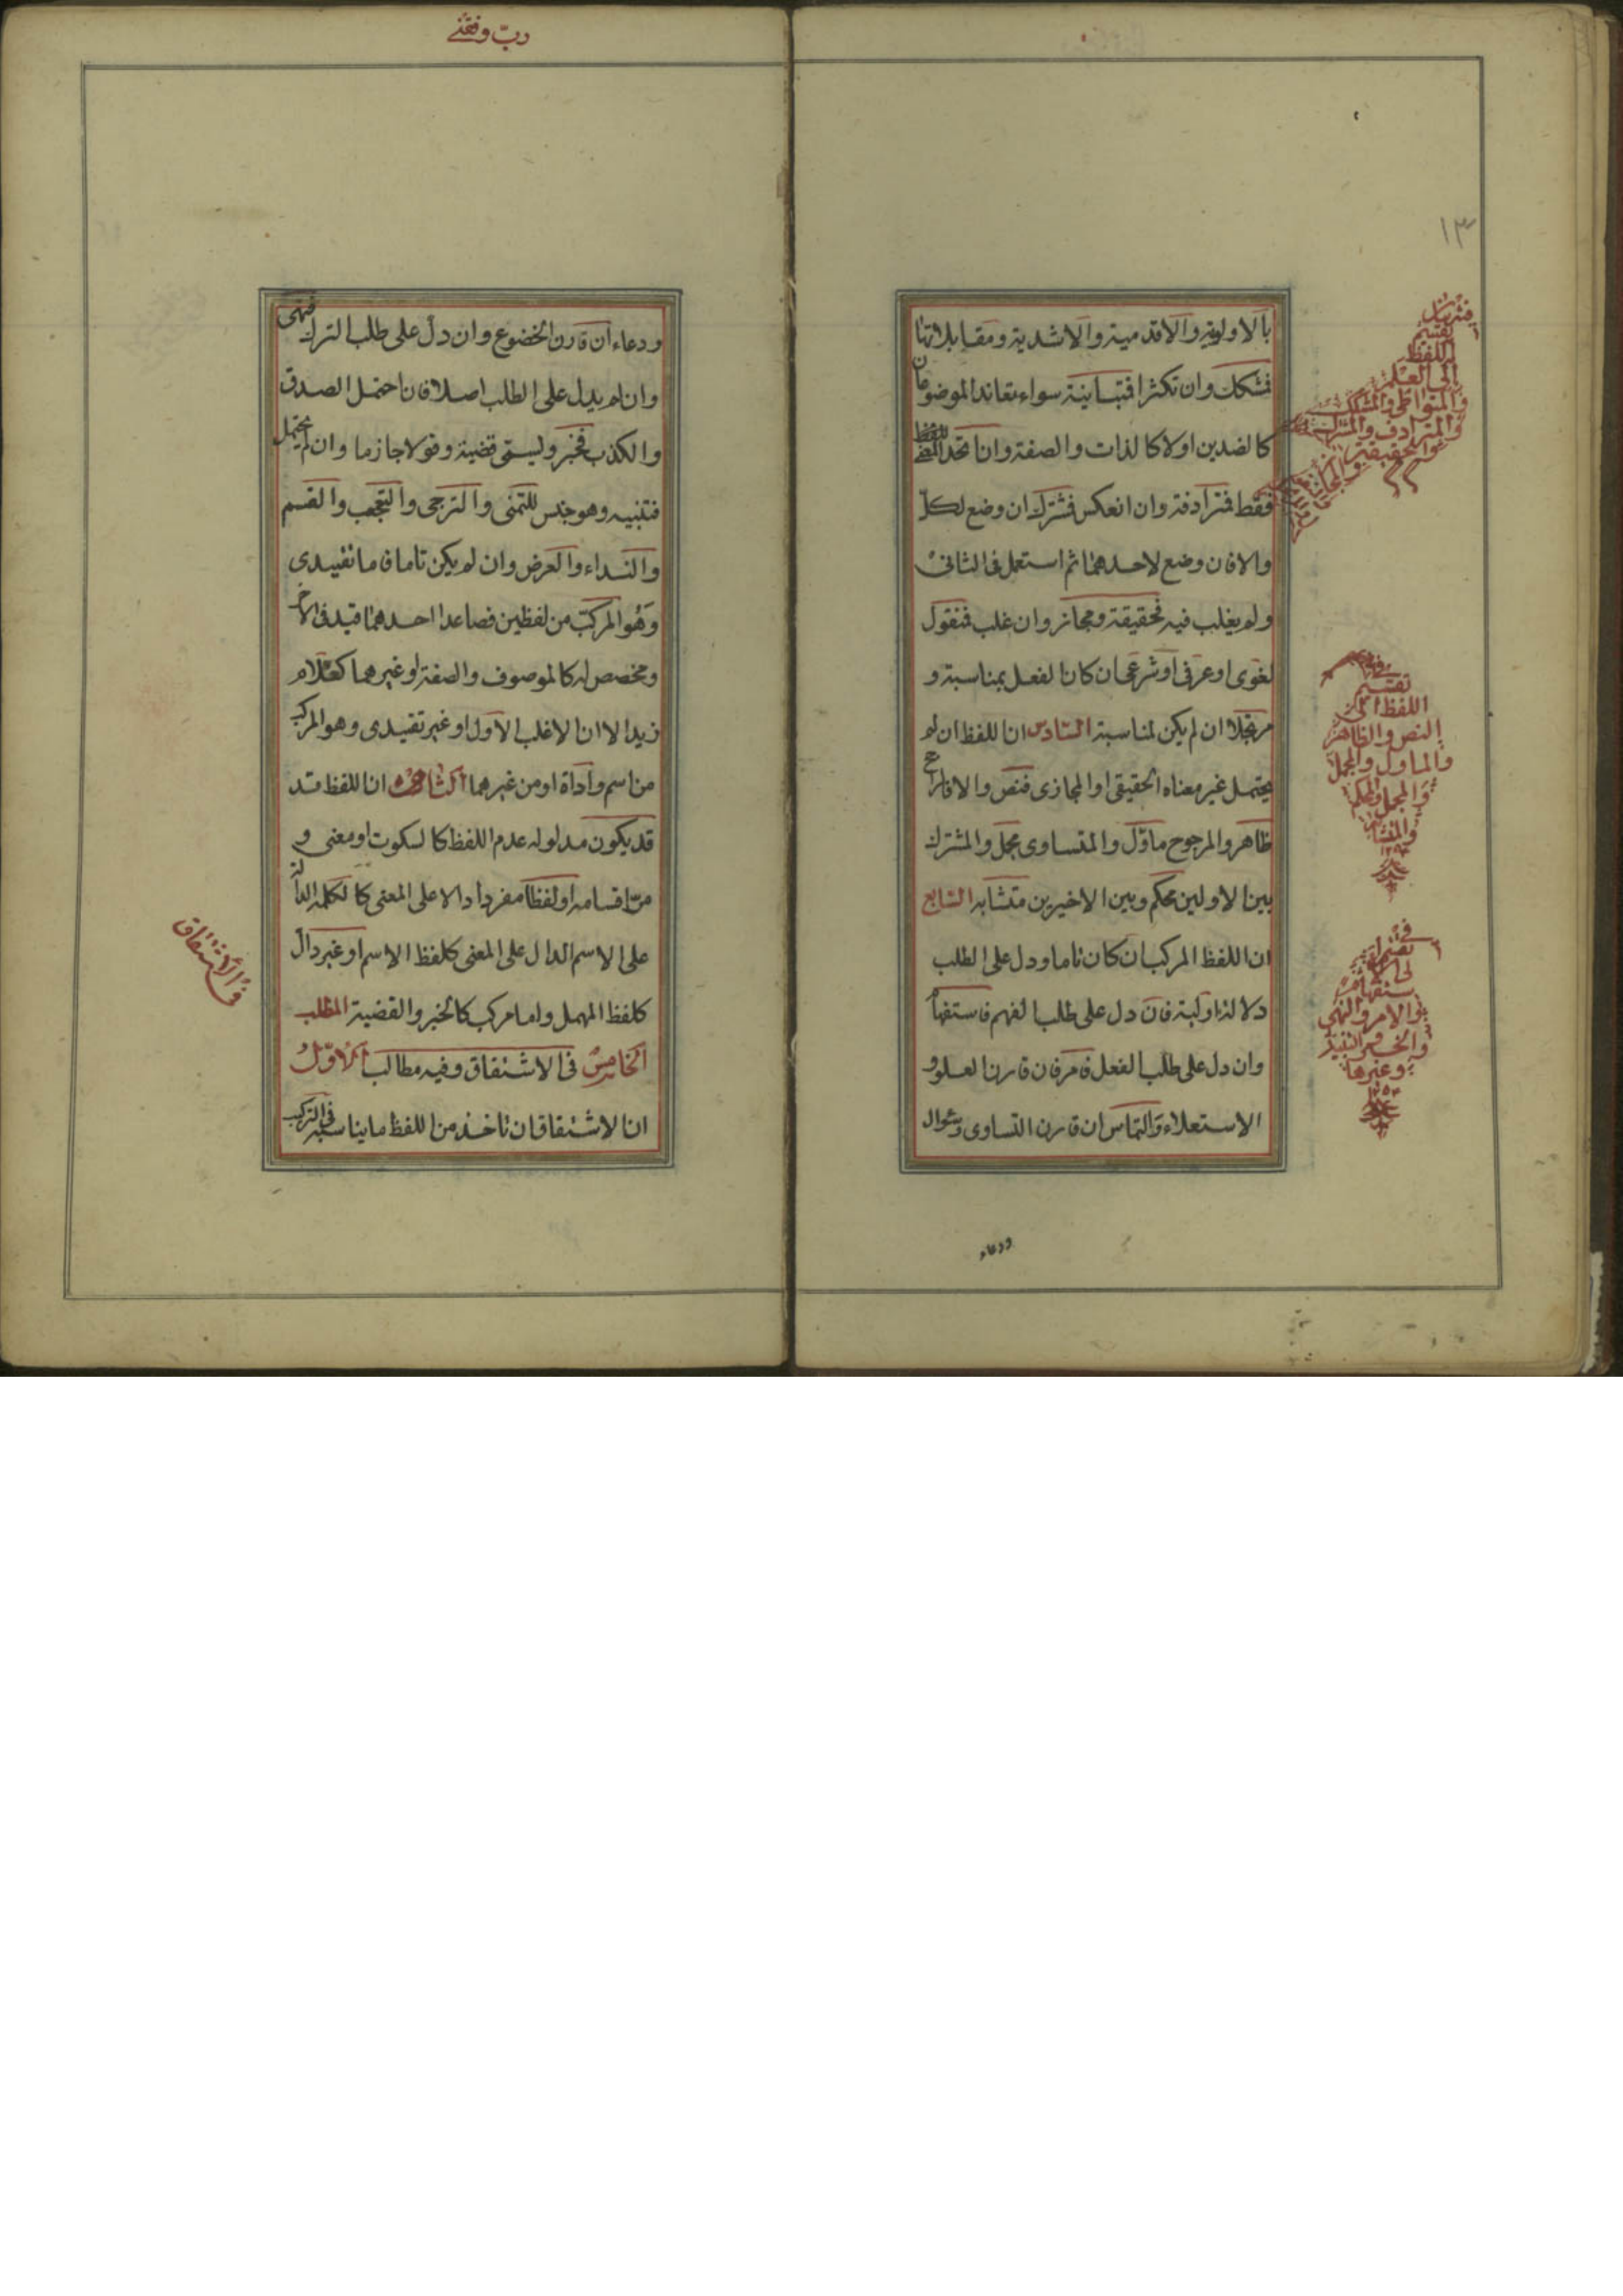 ١٣
بالاولوية والاقدمية والاشدية ومقابلاتها
فمشكك وان تكثرا فمتباينة سواء تعاند الموضوعان
كالضدين اولا كالذات والصفة وان اتحد المعنى
فقط فمترادفة وان انعكس فمشترك ان وضع لكل
والا فان وضع لاحدهما ثم استعمل فى الثانى
ولم يغلب فيه فحقيقة ومجاز وان غلب فمنقول
لغوى او عرفى او شرعى ان كان النقل بمناسبة و
مرتجلا ان لم يكن لمناسبة السادس ان اللفظ ان لم
يحتمل غير معناه الحقيقى او المجازى فنص والا فالراجح
ظاهر والمرجوح ماول والمتساوى مجمل والمشترك
بين الاولين محكم وبين الاخيرين متشابه السابع
ان اللفظ المركب ان كان تاما ودل على الطلب
دلالة اولية فان دل على طلب الفهم فاستفهام
وان دل على طلب الفعل فامر فان قارن العلو و
الاستعلاء والتماس ان قارن التساوى وسؤال
ودعاء
فى
تقسيم
اللفظ
الى العلم
والمتواطى والمشكك
والمترادف والمشترك
والحقيقة
والمجاز
فى
تقسيم
اللفظ الى
النص والظاهر
والماول والمجمل
والمحكم
والمتشابه
فى
تقسيم
الى الا
ستفهام
والامر والنهى
والخبر والتنبيه
وغيرها
ودعاء ان قارن الخضوع وان دل على طلب الترك فنهى
وان لم يدل على الطلب اصلا فان احتمل الصدق
والكذب فخبر وليسمى قضية وقولا جازما وان لم يحتمل
فتنبيه وهو جنس للتمنى والترجى والتعجب والقسم
والنداء والعرض وان لم يكن تاما فاما تقييدى
وهو المركب من لفظين فصاعدا احدهما قيد فى الاخر
ومخصص له كالموصوف والصفة او غيرهما كغلام
زيد الا ان الاغلب الاول او غير تقييدى وهو المركب
من اسم واداة او من غيرهما الثامن ان اللفظ قد
قد يكون مدلوله عدم اللفظ كالسكوت او معنى و
مر اقسامه او لفظا مفردا دالا على المعنى كالكلمة الدالة
على الاسم الدال على المعنى كلفظ الاسم او غير دال
كلفظ المهمل واما مركب كالخبر والقضية المطلب
الخامس فى الاشتقاق وفيه مطالب الاول
ان الاشتقاق ان تاخذ من اللفظ ما يناسبه فى التركيب
فى الاشتقاق